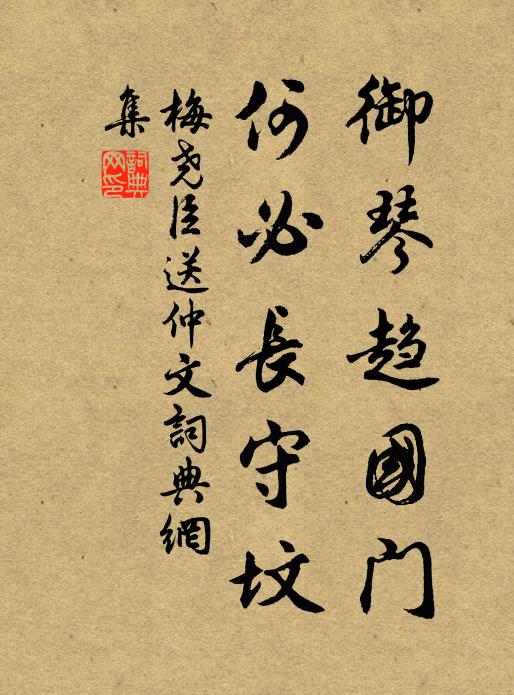 御琴趋國門
何必長守坟
梅尧臣送仲文詞典網
集
詞典
网印